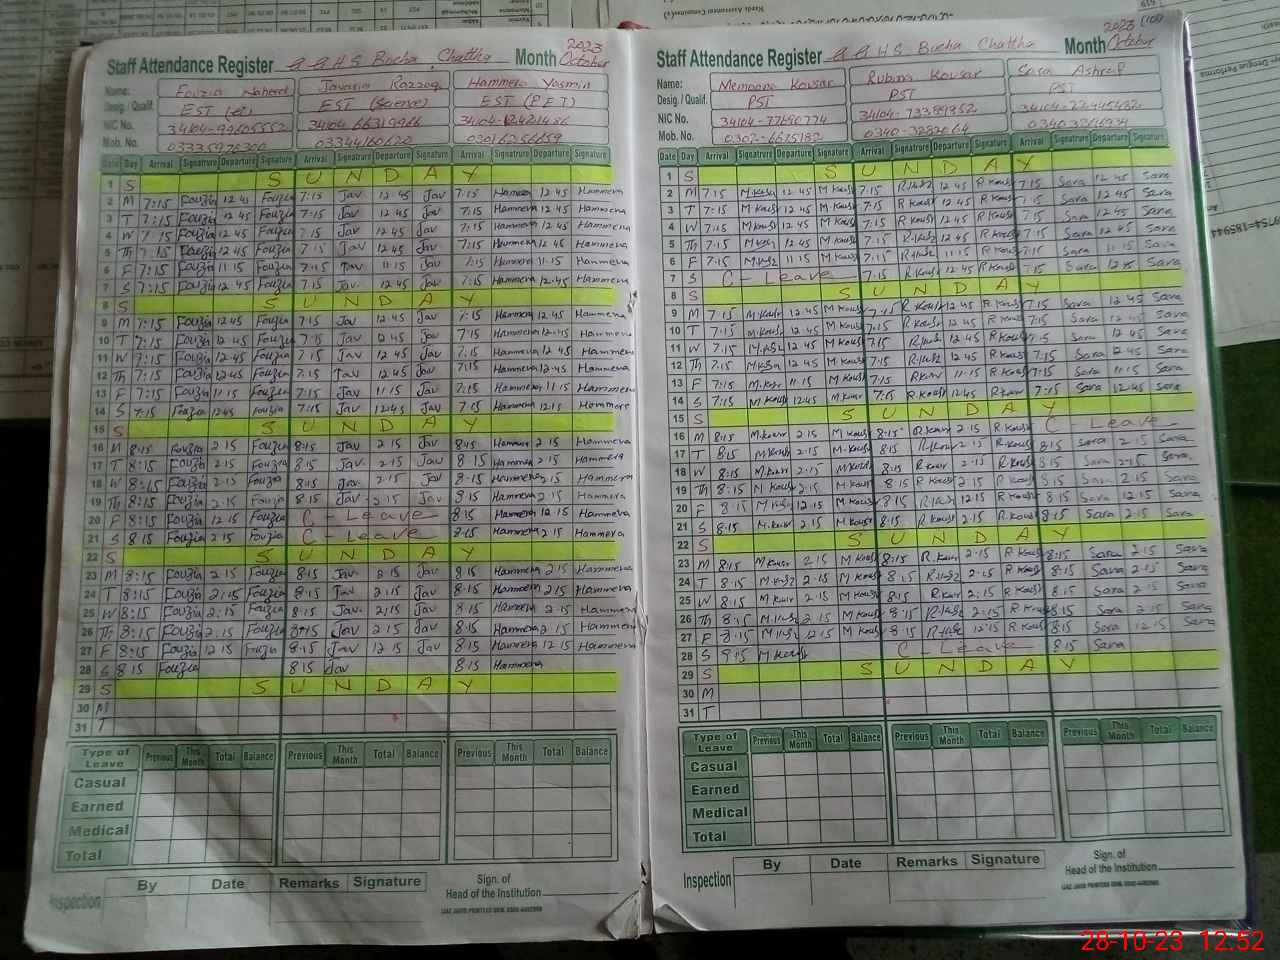 Staff Attendance Register G.G.H.S Bucha Chattha Month October 2023
Name: Fouzia Naheed Javaria Razzaq Hammera Yasmin
Desig. / Qualif. EST EST (Science) EST (P.E.T)
NIC No.
Mob. No.
Date Day Arrival Signature Departure Signature Arrival Signature Departure Signature Arrival Signature Departure Signature
1 S S U N D A Y
2 M 7:15 Fouzia 12 45 Fouzia 7:15 Jav 12 45 Jav 7:15 Hamera 12 45 Hammera
3 T 7:15 Fouzia 12 45 Fouzia 7:15 Jav 12 45 Jav 7:15 Hammera 12 45 Hammera
4 W 7:15 Fouzia 12 45 Fouzia 7:15 Jav 12 45 Jav 7:15 Hammera 12 45 Hammera
5 Th 7:15 Fouzia 12 45 Fouzia 7:15 Jav 12 45 Jav 7:15 Hammera 12 45 Hammera
6 F 7:15 Fouzia 11 15 Fouzia 7:15 Jav 11 15 Jav 7:15 Hammera 11 15 Hammera
7 S 7:15 Fouzia 12 45 Fouzia 7:15 Jav 12 45 Jav 7:15 Hammera 12 45 Hammera
8 S S U N D A Y
9 M 7:15 Fouzia 12 45 Fouzia 7:15 Jav 12 45 Jav 7:15 Hammera 12 45 Hammera
10 T 7:15 Fouzia 12 45 Fouzia 7:15 Jav 12 45 Jav 7:15 Hammera 12 45 Hammera
11 W 7:15 Fouzia 12 45 Fouzia 7:15 Jav 12 45 Jav 7:15 Hammera 12 45 Hammera
12 Th 7:15 Fouzia 12 45 Fouzia 7:15 Jav 12 45 Jav 7:15 Hammera 12 45 Hammera
13 F 7:15 Fouzia 11 15 Fouzia 7:15 Jav 11 15 Jav 7:15 Hammera 11 15 Hammera
14 S 7:15 Fouzia 12 45 Fouzia 7:15 Jav 12 45 Jav 7:15 Hammera 12 15 Hammera
15 S S U N D A Y
16 M 8:15 Fouzia 2 15 Fouzia 8:15 Jav 2 15 Jav 8:15 Hammera 2 15 Hammera
17 T 8:15 Fouzia 2 15 Fouzia 8:15 Jav 2 15 Jav 8 15 Hammera 2 15 Hammera
18 W 8:15 Fouzia 2 15 Fouzia 8:15 Jav 2 15 Jav 8:15 Hammera 2 15 Hammera
19 Th 8:15 Fouzia 2 15 Fouzia 8:15 Jav 2 15 Jav 8 15 Hammera 2 15 Hammera
20 F 8:15 Fouzia 12 15 Fouzia C - Leave 8:15 Hammera 12 15 Hammera
21 S 8 15 Fouzia 2 15 Fouzia C - Leave 8:15 Hammera 2 15 Hammera
22 S S U N D A Y
23 M 8:15 Fouzia 2 15 Fouzia 8:15 Jav 2 15 Jav 8 15 Hammera 2 15 Hammera
24 T 8:15 Fouzia 2:15 Fouzia 8:15 Jav 2 15 Jav 8:15 Hammera 2 15 Hammera
25 W 8:15 Fouzia 2:15 Fouzia 8:15 Jav 2:15 Jav 8:15 Hammera 2 15 Hammera
26 Th 8:15 Fouzia 2 15 Fouzia 8:15 Jav 2 15 Jav 8:15 Hammera 2 15 Hammera
27 F 8:15 Fouzia 12 15 Fouzia 8:15 Jav 12 15 Jav 8:15 Hammera 12 15 Hammera
28 S 8 15 Fouzia 8 15 Jav 8 15 Hammera
29 S S U N D A Y
30 M
31 T
Type of Leave Previous This Month Total Balance Previous This Month Total Balance Previous This Month Total Balance
Casual
Earned
Medical
Total
Inspection By Date Remarks Signature Sign. of Head of the Institution
Staff Attendance Register G.G.H.S Bucha Chattha Month October 2023
Name: Memoona Kousar Rubina Kousar Sara Ashraf
Desig. / Qualif. PST PST PST
NIC No.
Mob. No.
Date Day Arrival Signature Departure Signature Arrival Signature Departure Signature Arrival Signature Departure Signature
1 S S U N D A Y
2 M 7:15 M.Kousr 12 45 M Kousr 7:15 R.Kousr 12 45 R Kousr 7:15 Sara 12 45 Sara
3 T 7:15 M Kousr 12 45 M Kousr 7:15 R Kousr 12 45 R Kousr 7:15 Sara 12 45 Sara
4 W 7:15 M Kousr 12 45 M Kousr 7:15 R Kousr 12 45 R Kousr 7:15 Sara 12 45 Sara
5 Th 7:15 M Kousr 12 45 M Kousr 7:15 R Kousr 12 45 R Kousr 7:15 Sara 12 45 Sara
6 F 7:15 M Kousr 11 15 M Kousr 7:15 R Kousr 11 15 R Kousr 7:15 Sara 11 15 Sara
7 S C - Leave 7:15 R Kousr 12 45 R Kousr 7:15 Sara 12 45 Sara
8 S S U N D A Y
9 M 7:15 M.Kousr 12 45 M Kousr 7:15 R Kousr 12 45 R Kousr 7:15 Sara 12 45 Sara
10 T 7:15 M.Kousr 12 45 M Kousr 7:15 R.Kousr 12 45 R Kousr 7:15 Sara 12 45 Sara
11 W 7:15 M.Kousr 12 45 M Kousr 7:15 R.Kousr 12 45 R Kousr 7:15 Sara 12 45 Sara
12 Th 7:15 M Kousr 12 45 M Kousr 7:15 R.Kousr 12 45 R Kousr 7:15 Sara 12 45 Sara
13 F 7:15 M.Kousr 11 15 M Kousr 7:15 R Kousr 11 15 R Kousr 7:15 Sara 11 15 Sara
14 S 7:15 M Kousr 12 45 M Kousr 7:15 R Kousr 12 45 R.Kousr 7:15 Sara 12 45 Sara
15 S S U N D A Y
16 M 8:15 M.Kousr 2 15 M Kousr 8:15 R.Kousr 2 15 R Kousr C - Leave
17 T 8:15 M Kousr 2 15 M Kousr 8:15 R.Kousr 2 15 R Kousr 8:15 Sara 2 15 Sara
18 W 8:15 M.Kousr 2 15 M Kousr 8:15 R Kousr 2 15 R Kousr 8:15 Sara 2 15 Sara
19 Th 8:15 M Kousr 2 15 M Kousr 8 15 R Kousr 2 15 R Kousr 8:15 Sara 2 15 Sara
20 F 8:15 M Kousr 12 15 M Kousr 8:15 R Kousr 12 15 R Kousr 8:15 Sara 12 15 Sara
21 S 8:15 M.Kousr 2 15 M Kousr 8:15 R Kousr 2 15 R Kousr 8:15 Sara 2 15 Sara
22 S S U N D A Y
23 M 8:15 M.Kousr 2 15 M Kousr 8:15 R.Kousr 2 15 R Kousr 8:15 Sara 2 15 Sara
24 T 8:15 M.Kousr 2 15 M Kousr 8:15 R.Kousr 2 15 R Kousr 8:15 Sara 2 15 Sara
25 W 8:15 M Kousr 2 15 M Kousr 8:15 R Kousr 2:15 R Kousr 8:15 Sara 2 15 Sara
26 Th 8:15 M.Kousr 2 15 M Kousr 8:15 R.Kousr 2 15 R Kousr 8:15 Sara 2 15 Sara
27 F 8:15 M Kousr 12 15 M Kousr 8:15 R.Kousr 12 15 R Kousr 8:15 Sara 12 15 Sara
28 S 8:15 M Kousr C - Leave 8:15 Sara
29 S S U N D A Y
30 M
31 T
Type of Leave Previous This Month Total Balance Previous This Month Total Balance Previous This Month Total Balance
Casual
Earned
Medical
Total
Inspection By Date Remarks Signature Sign. of Head of the Institution
28-10-23 12:52